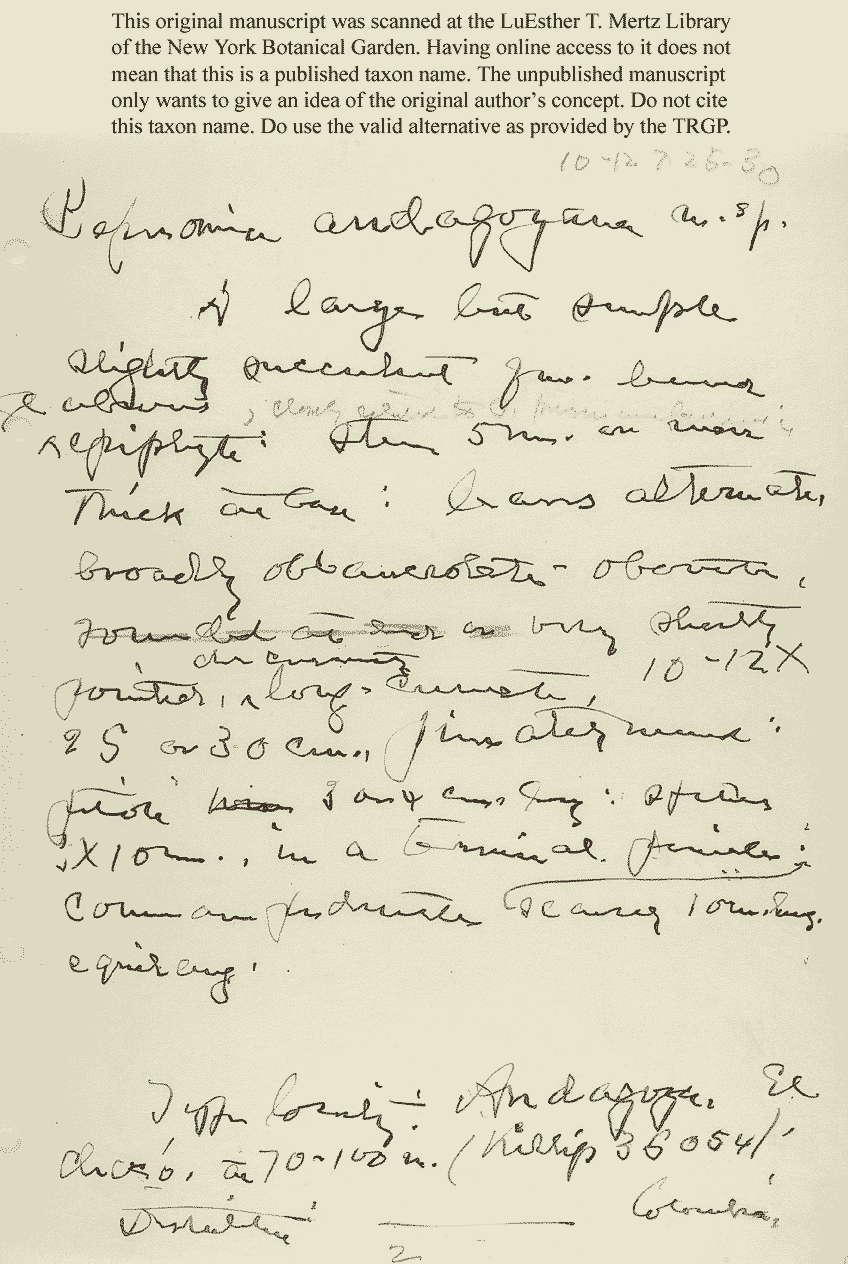 This original manuscript was scanned at the LuEsther T. Mertz Library
of the New York Botanical Garden. Having online access to it does not
mean that this is a published taxon name. The unpublished manuscript
only wants to give an idea of the original author's concept. Do not cite
this taxon name. Do use the valid alternative as provided by the TRGP.
10-12 × 25-30
Peperomia andagoyana n. sp.
A large but simple
slightly succulent
glabrous
epiphyte: stem 5 mm. or more
thick at base: leaves alternate,
broadly oblanceolate-obovate,
rounded at end or very shortly
pointed, long-cuneate, 10-12 ×
25 or 30 cm., pinnately nerved:
petiole 3 or 4 cm. long: spikes
in a terminal panicle:
common peduncle scarcely 10 mm. long.
Type locality: Andagoya, El
Chocó, at 70-100 m. (Killip 35054)
Colombia.
2